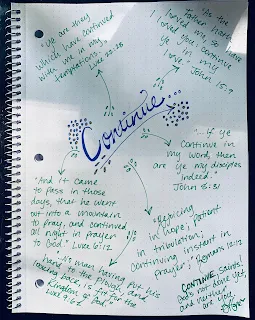 "Ye are they
which have continued
with me in my
temptations."
Luke 22:28
"As the
Father hath
loved me, so have
I loved you: continue
ye in my
love." John 15:9
Continue...
"...If ye
continue in
my word, then
are ye my disciples
indeed."
John 8:31
"And it came
to pass in those
days, that he went
out into a mountain
to pray, and continued
all night in prayer
to God." Luke 6:12
"Rejoicing
in hope; patient
in tribulation;
continuing instant in
prayer;" Romans 12:12
"No man, having put his
hand to the plough, and
looking back, is fit for the
kingdom of God."
Luke 9:62
CONTINUE Saints!
God's not done yet,
and neither
are you.